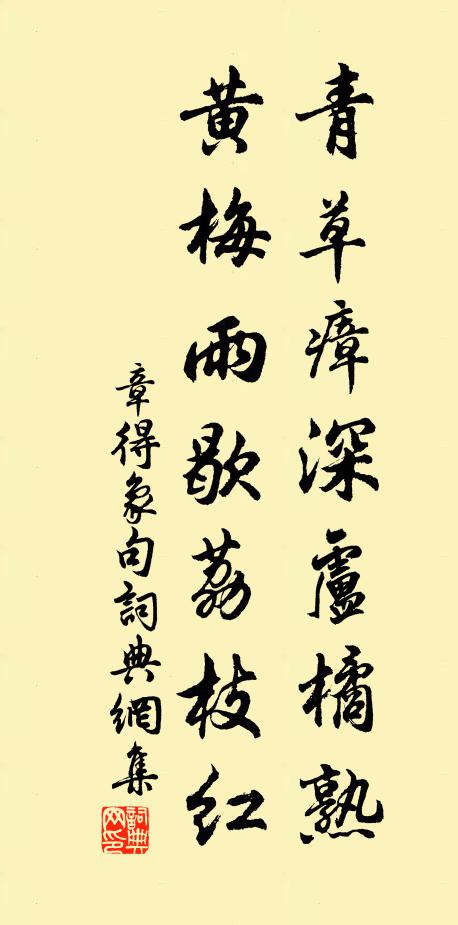 青草瘴深盧橘熟
黃梅雨歇荔枝紅
章得象句詞典網集
詞典網印